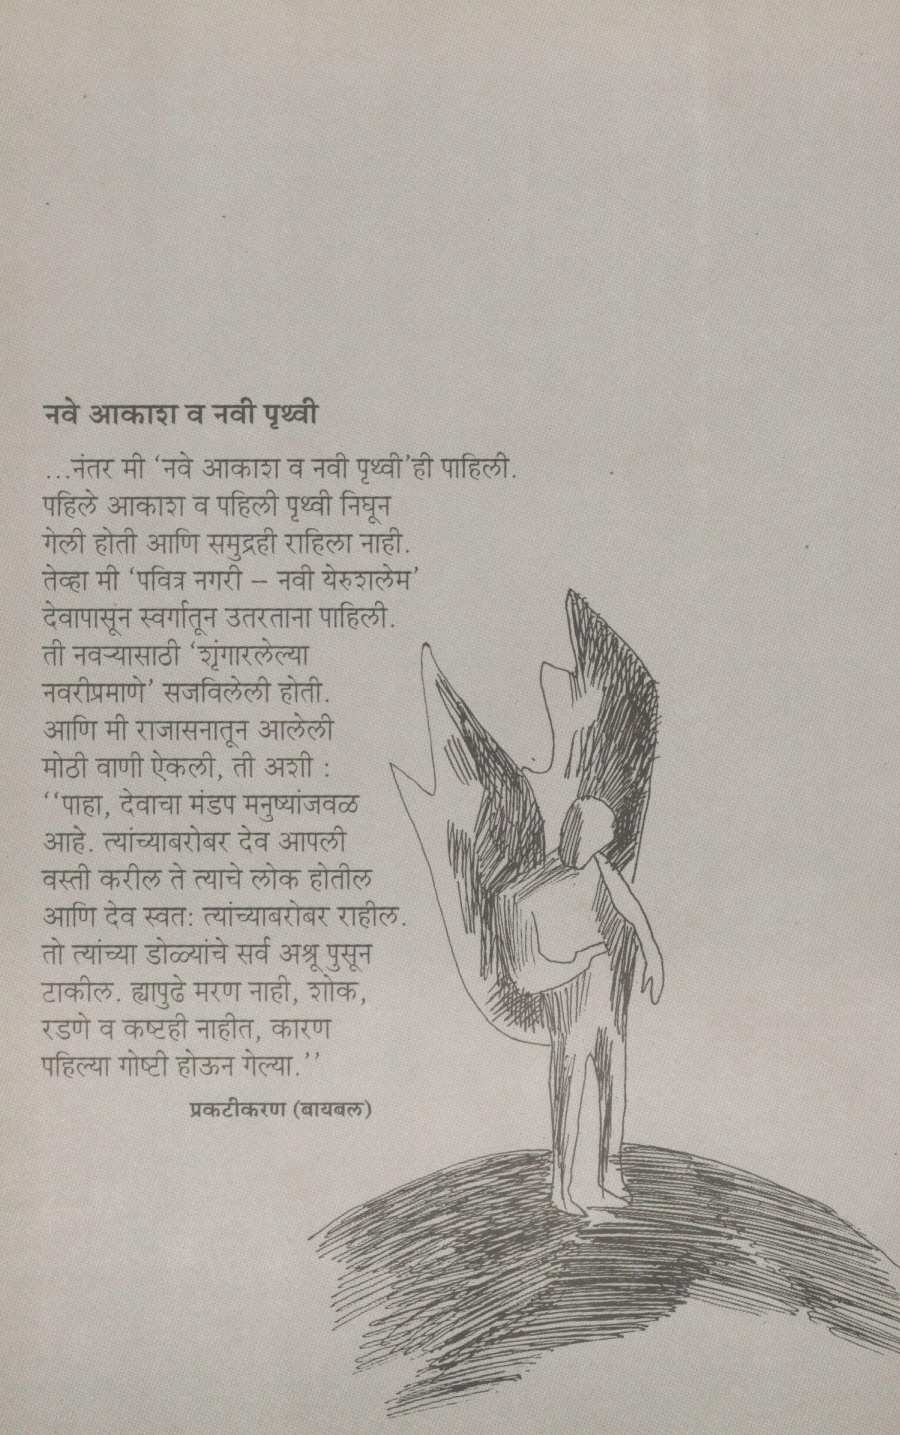 नवे आकाश व नवी पृथ्वी
...नंतर मी ‘नवे आकाश व नवी पृथ्वी’ही पाहिली.
पहिले आकाश व पहिली पृथ्वी निघून
गेली होती आणि समुद्रही राहिला नाही.
तेव्हा मी ‘पवित्र नगरी – नवी येरुशलेम’
देवापासून स्वर्गातून उतरताना पाहिली.
ती नवऱ्यासाठी ‘शृंगारलेल्या
नवरीप्रमाणे’ सजविलेली होती.
आणि मी राजासनातून आलेली
मोठी वाणी ऐकली, ती अशी :
‘‘पाहा, देवाचा मंडप मनुष्यांजवळ
आहे. त्यांच्याबरोबर देव आपली
वस्ती करील ते त्याचे लोक होतील
आणि देव स्वतः त्यांच्याबरोबर राहील.
तो त्यांच्या डोळ्यांचे सर्व अश्रू पुसून
टाकील. ह्यापुढे मरण नाही, शोक,
रडणे व कष्टही नाहीत, कारण
पहिल्या गोष्टी होऊन गेल्या.’’
प्रकटीकरण (बायबल)